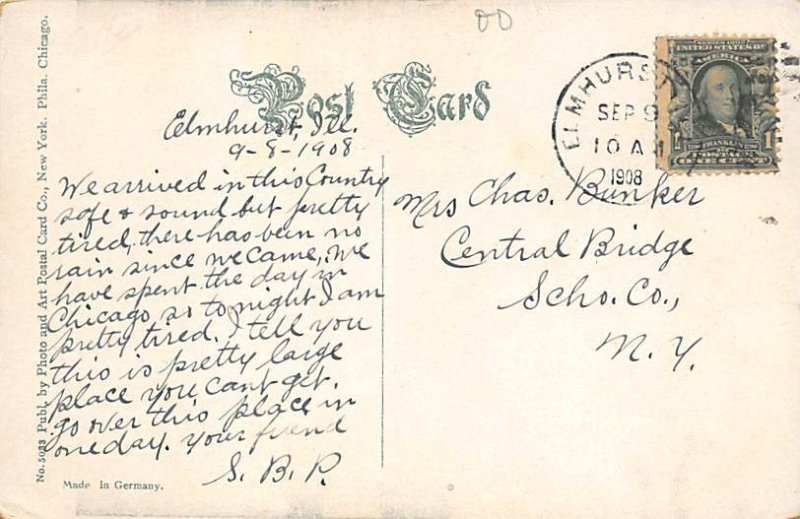 00
Post Card
No. 5023 Publ. by Photo and Art Postal Card Co., New York. Phila. Chicago.
Elmhurst, Ill.
9-8-1908
We arrived in this Country
safe & sound but pretty
tired, there has been no
rain since we came, We
have spent the day in
Chicago, so to night I am
pretty tired. I tell you
this is pretty large
place you cant get.
go over this place in
one day. your friend
S. B. P.
Made in Germany.
ELMHURST
SEP 9
10 AM
1908
SERIES 1902
UNITED STATES OF
AMERICA
FRANKLIN
POSTAGE
1 ONE CENT 1
Mrs Chas. Bunker
Central Bridge
Scho. Co.,
N. Y.